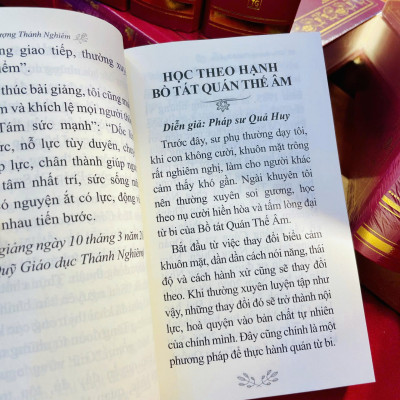 ượng Thánh Nghiêm
ng giao tiếp, thường xuy
iểm”.
thúc bài giảng, tôi cũng m
và khích lệ mọi người th
Tám sức mạnh”: “Dốc l
rc, nỗ lực tùy duyên, che
p lực, chân thành giúp ng
tâm nhất trí, sức sống m
ó nguyện ắt có lực, động v
nhau tiến bước.
giảng ngày 10 tháng 3 năm 2
Quỹ Giáo dục Thánh Nghiêm
HỌC THEO HẠNH
BỒ TÁT QUÁN THẾ ÂM
Diễn giả: Pháp sư Quả Huy
Trước đây, sư phụ thường dạy tôi,
khi con không cười, khuôn mặt trông
rất nghiêm nghị, làm cho người khác
cảm thấy khó gần. Ngài khuyên tôi
nên thường xuyên soi gương, học
theo nụ cười hiền hòa và tấm lòng đại
từ bi của Bồ tát Quán Thế Âm.
Bắt đầu từ việc thay đổi biểu cảm
khuôn mặt, dần dần cách nói năng, thái
độ và cách hành xử cũng sẽ thay đổi
theo. Khi thường xuyên luyện tập như
vậy, những thay đổi đó sẽ trở thành nội
lực, hoà quyện vào bản chất tự nhiên
của chính mình. Đây cũng chính là một
phương pháp để thực hành quán từ bi.